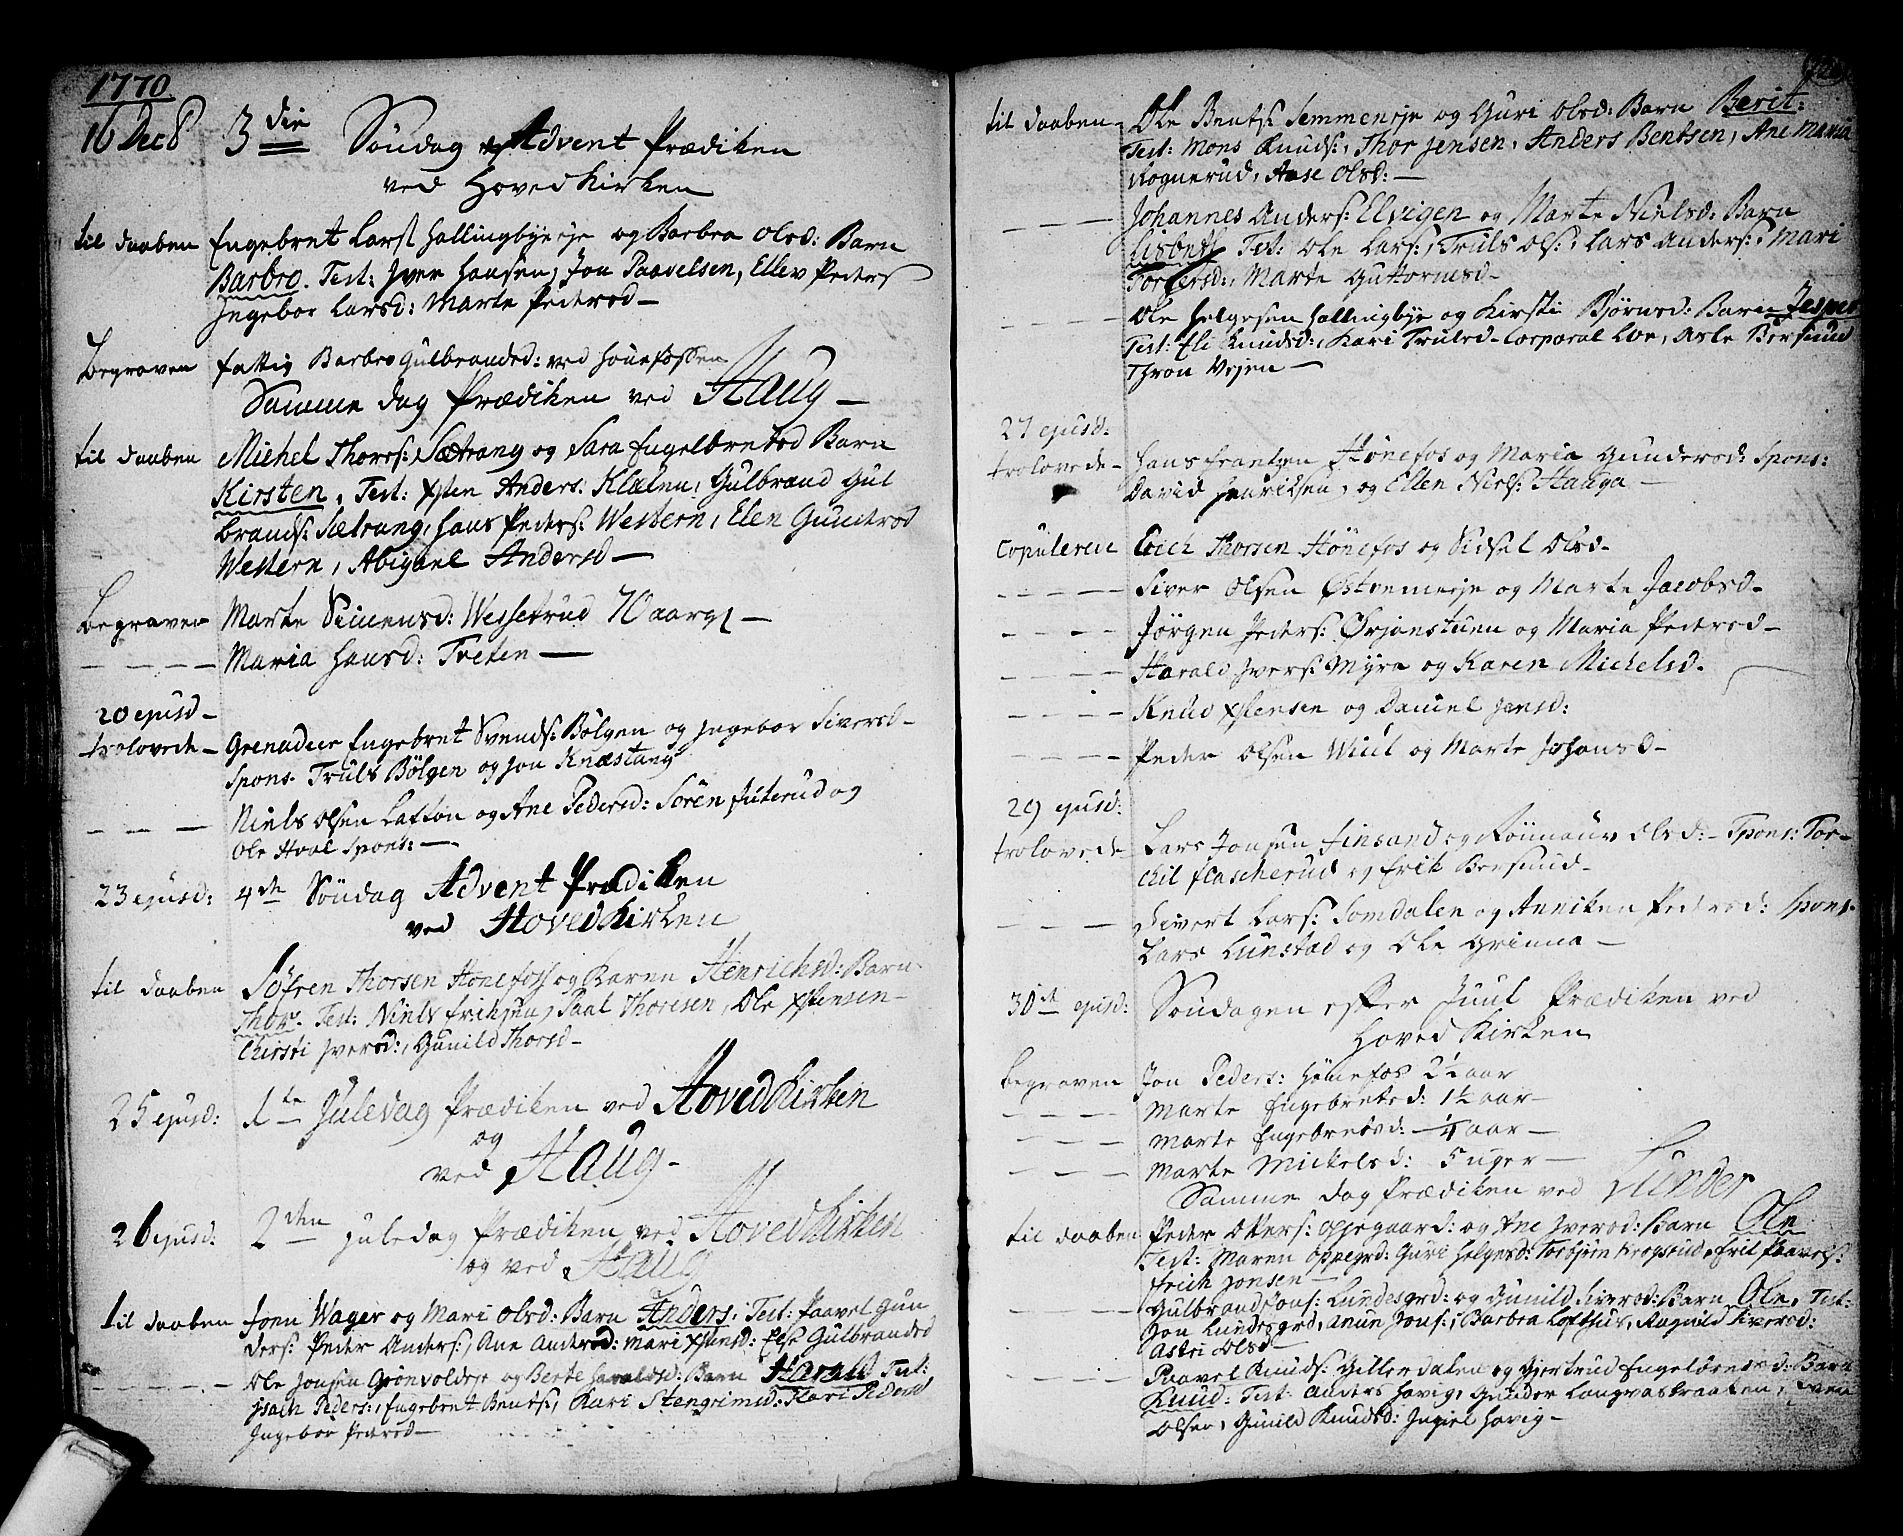 1770
16 Dec 8 3die Söndag Advent Prædiken
ved HovedKirken
til daaben Engebret Lars: Hallingbyeeje og Barbra Olsd: Barn
Barbro. Test: Jver Hansen, Jon Paavelsen, Ellev Peders
Jngebor Larsd: Marte Pedersd —
Begraven fattig Barbro Gulbrandsd: ved Hönefossen
Samme dag Prædiken ved Haug —
til daaben Michel Thores: Sætrang og Sara Engelbretsd Barn
Kirsten, Test: Xsten Anders: Klælen, Gulbrand Gul
brands: Sætrang, Hans Peders: Western, Elen Gundersd
Western, Abigael Andersd —
Begraven Marte Simensd: Wessetrud 70 aar —
— — — — Maria Hansd: Tveten —
20 ejusd —
trolovede — Grenadeer Engebret Svends: Bölgen og Jngebor Siversd —
Spons. Truls Bölgen og Jon Knæstang
— — — Niels Olsen Lafton og Ane Pedersd: Sören Juterud og
Ole Hval Spons: —
23 ejusd: 4de Söndag Advent Prædiken
ved HovedKirken
til daaben Söfren Thorsen Hönefoss og Karen Henrichsd: Barn
Thor. Test: Niels Erichsen, Paal Thoresen, Ole Xstensen —
Chirsti Jversd:, Gunild Thorsd —
25 ejusd: 1te Juledag Prædiken ved HovedKirken
og
ved Haug —
26 ejusd: 2den Juledag Prædiken ved HovedKirken
og ved Haug
til daaben Joen Wager og Mari Olsd: Barn Anders. Test: Paavel Gun
ders: Peder Anders:, Ane Andersd: Mari Xstensd: Else Gulbrandsd
— — — — Ole Jonsen Grönvoldeje og Berte Haraldsd: Barn Harald Test:
Jsach Peders:, Engebret Bents:, Kari Stengrimsd: Kari Pedersd
Jngebor Pedersd —
til daaben — Ole Bents: Semmeneje og Guri Olsd: Barn Berit:
Test: Mons Knuds:, Thor Jensen, Anders Bentsen, Ane Maria
Rognerud, Aase Olsd: —
— — — Johannes Anders: Elvigen og Marte Nielsd: Barn
Lisbeth Test: Ole Lars:, Truls Ols:, Lars Anders:, Mari
Torgersd:, Marte Guttormsd —
— — — Ole Helgesen Hallingbye og Kirsti Björnsd: Barn Jesper
Test: Eli Knudsd:, Kari Trulsd — Corporal Loe, Asle Bersund
Thron Vejen —
27 ejusd:
trolovede — Hans Frantzen Hönefos og Maria Gundersd: Spons:
David Henriksen, og Ellen Niels: Hauga —
Copuleren Erich Thorsen Hönefos og Sidsel Olsd —
— — — — Siver Olsen Østenneneje og Marte Jacobsd —
— — — — Jörgen Peders: Ørjanstuen og Maria Pedersd —
— — — — Harald Jvers: Myra og Karen Michelsd —
— — — — Knud Xstensen og Daniel Jensd:
— — — — Peder Olsen Wiul og Marte Johansd —
29 ejusd:
trolovede Lars Jonsen Finsand og Rönnaug Olsd: — Spons: Tor—
chil Flascherud og Erik Bersund —
— — — Sivert Lars: Somdalen og Anniken Pedersd: Spons.
Lars Lunstad og Ole Grinna —
30te ejusd: Söndagen efter Juul Prædiken ved
HovedKirken
Begraven Jon Peders: Hönefos 2½ aar
— — — — Marte Engebretsd: 1½ aar —
— — — — Marte Engebretsd: — ¼ aar —
— — — — Marte Mickelsd: 5 uger —
Samme dag Prædiken ved Lunder
til daaben Peder Oters: Opsegaard: og Ane Jversd: Barn Ole
Test: Maren Oppegrd: Guri Helgesd: Torbjörn Krogsrud, Erik Paavels:
Erich Jonsen —
— — — Gulbrand Jons: Lundesgrd: og Gunild Siversd: Barn Ole, Test:
Jon Lundesgrd, Amun Jons:, Barbra Lofthus, Ragnild Siversd:
Astri Olsd —
— — — Paavel Knuds: Gillerdalen og Gjertrud Engelbretsd: Barn
Knud: Test: Anders Hovig, Gunder Langvasbraaten, Even
Olsen, Gunild Knudsd: Jngiel Hovig —